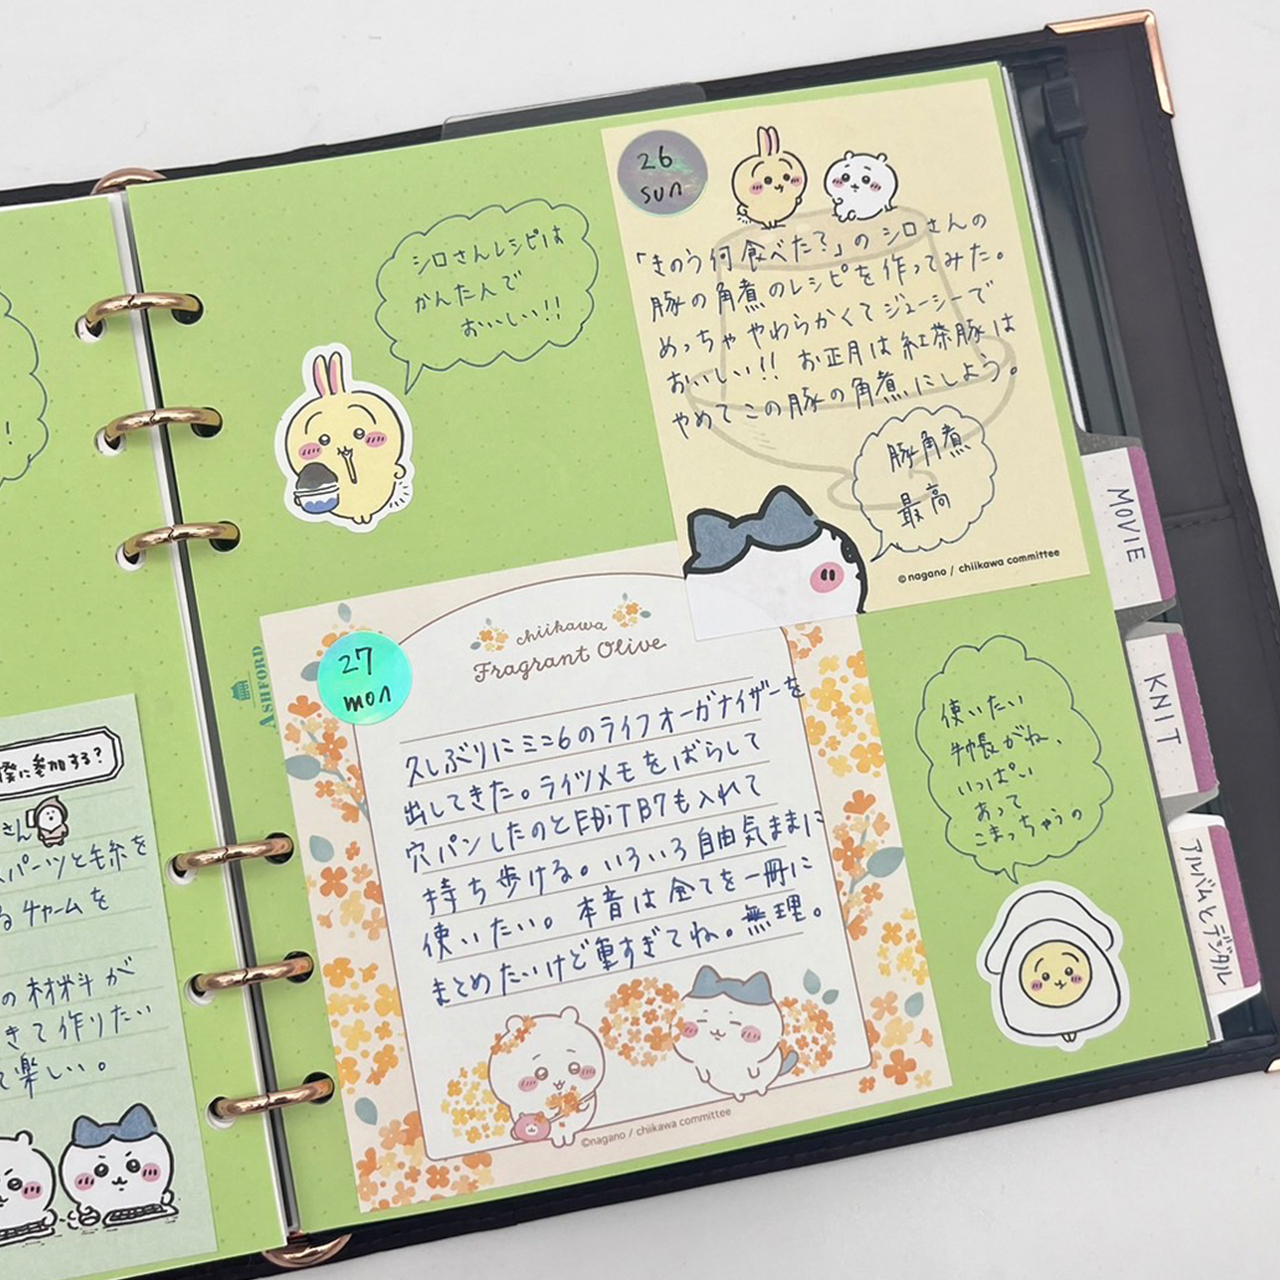 !
僕に参加する?
さん
パーツと毛糸を
るチャームを
の材料が
きて作りたい
て楽しい。
ASHFORD
シロさんレシピは
かんた人で
おいしい!!
26
sun
「きのう何食べた?」のシロさんの
豚の角煮のレシピを作ってみた。
めっちゃやわらかくてジューシーで
おいしい!! お正月は紅茶豚は
やめてこの豚の角煮にしよう。
豚角煮
最高
©nagano / chiikawa committee
27
mon
chiikawa
Fragrant Olive
久しぶりにミニ6のライフオーガナイザーを
出してきた。ライツメモをばらして
穴パンしたのとEDiT B7も入れて
持ち歩ける。いろいろ自由気ままに
使いたい。本音は全てを一冊に
まとめたいけど重すぎてね。無理。
©nagano / chiikawa committee
使いたい
手帳がね、
いっぱい
あって
こまっちゃうの
MOVIE
KNIT
アルバムとデジタル